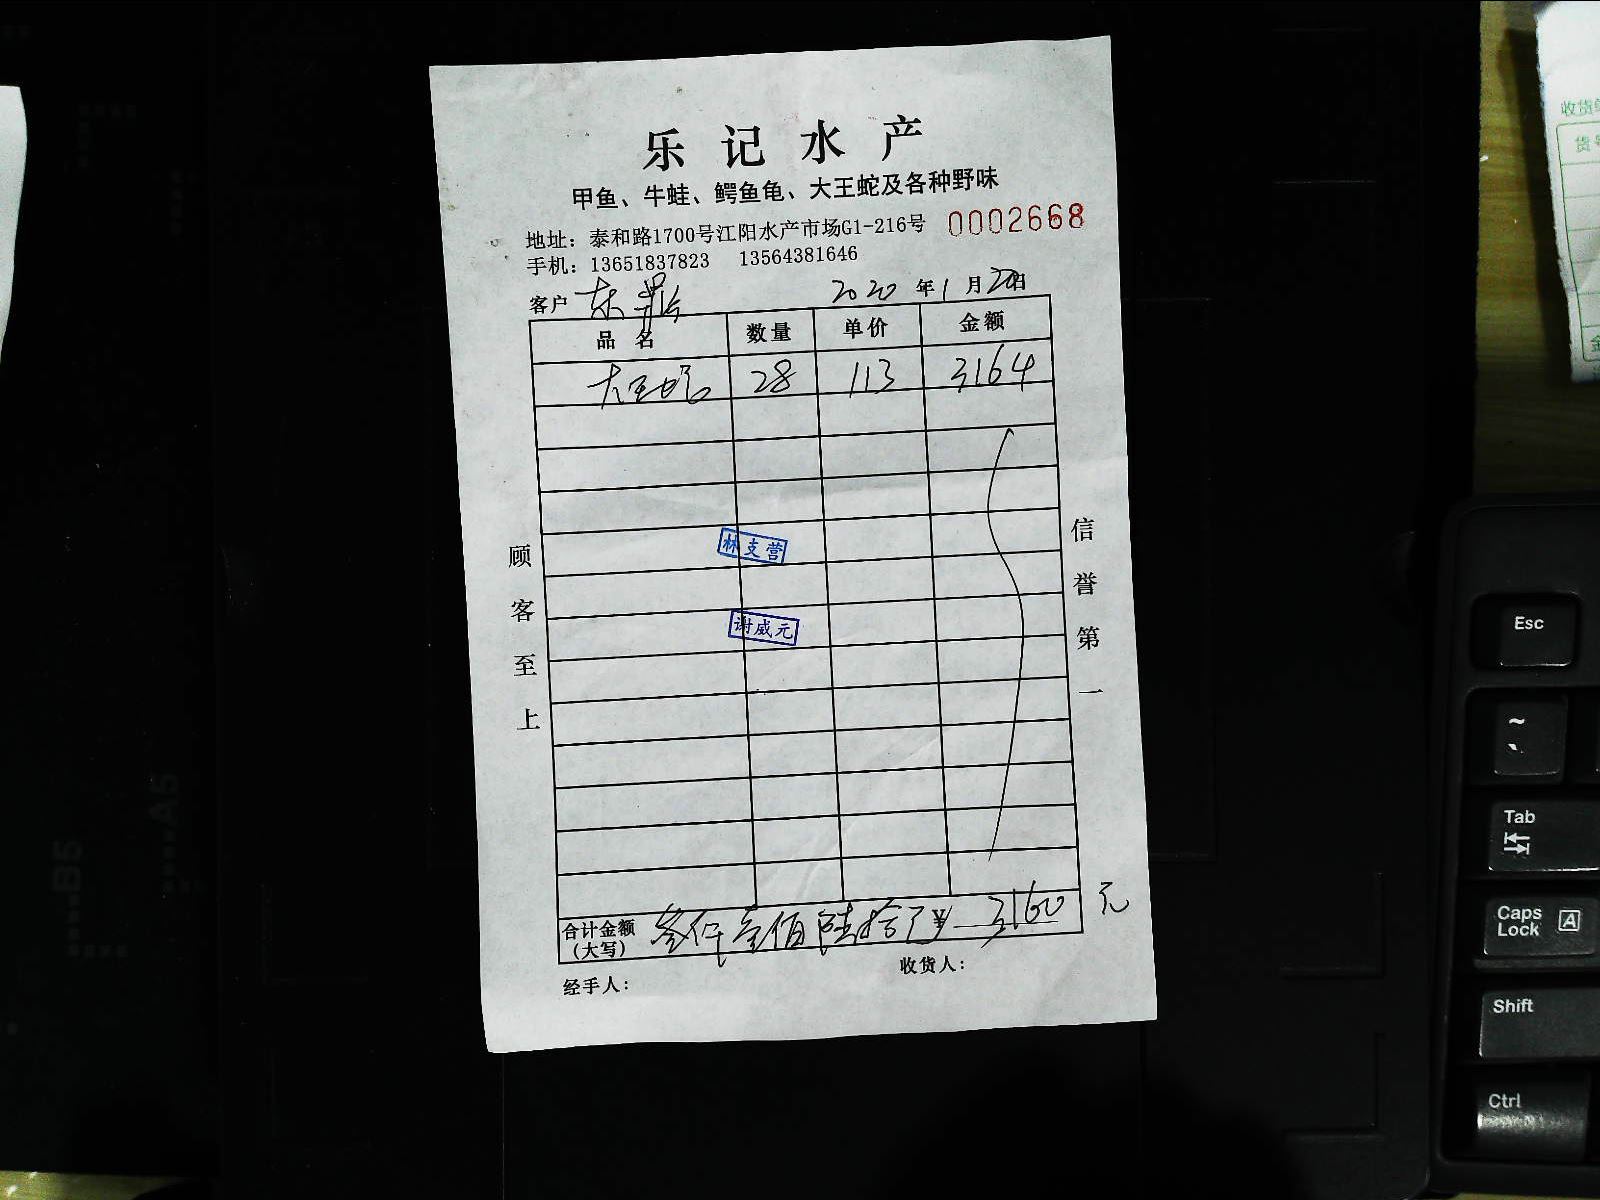 乐记水产
甲鱼、牛蛙、鳄鱼龟、大王蛇及各种野味
地址：泰和路1700号江阳水产市场G1-216号 0002668
手机：13651837823 13564381646
客户 东 2020 年 1 月 20 日
品名 数量 单价 金额
大王蛇 28 113 3164
林支营
谢威元
顾客至上
信誉第一
合计金额 叁仟壹佰陆拾 ¥ 3160 元
（大写）
经手人： 收货人：
收货
货号
金
B5
A5
Esc
~
`
Tab
Caps Lock A
Shift
Ctrl